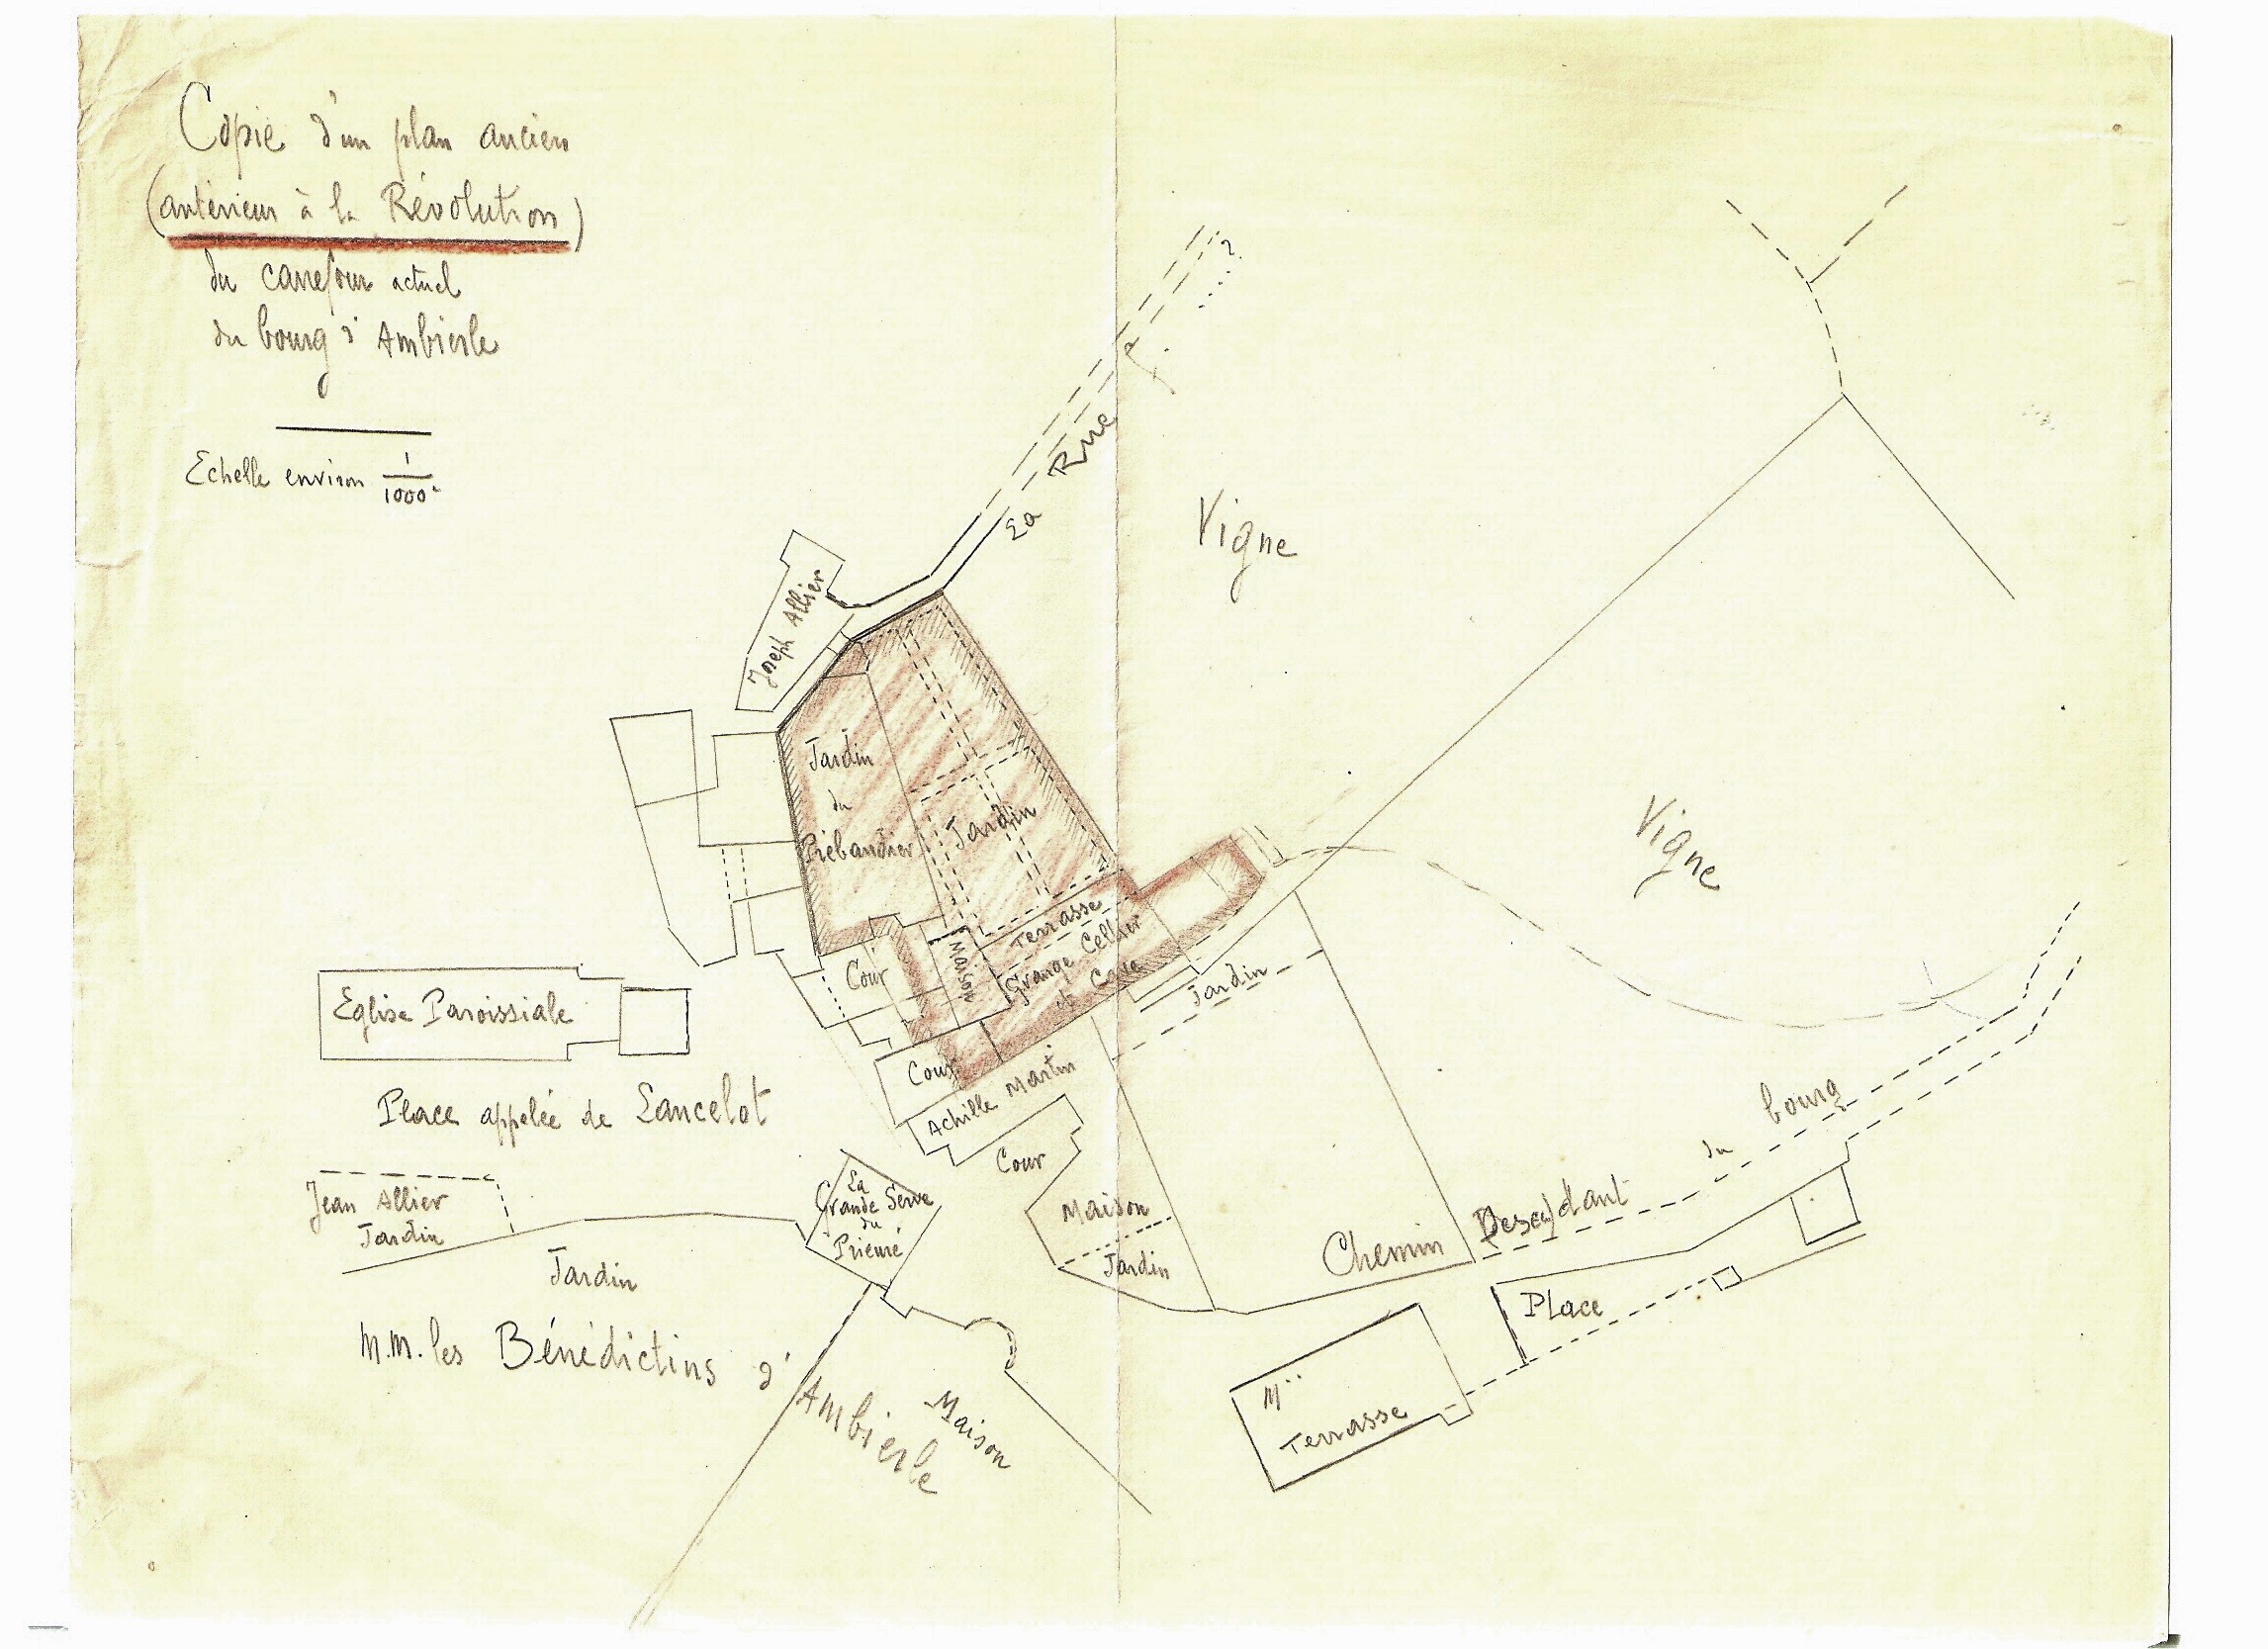 Copie d'un plan ancien
(antérieur à la Révolution)
du carrefour actuel
du bourg d'Ambierle
Echelle environ 1/1000e
?
La Rue
Vigne
Joseph Allier
Jardin
du
Prébandier
Jardin
Vigne
Terrasse
Grange Cellier
et Cave
Maison
Cour
Jardin
Eglise Paroissiale
Cour
Achille Martin
Place appelée de Lancelot
Cour
Jean Allier
Jardin
La
Grande Serve
du
Prieuré
Maison
Jardin
Chemin Descendant du bourg
Jardin
Place
M.M. les Bénédictins d'Ambierle
Maison
Terrasse